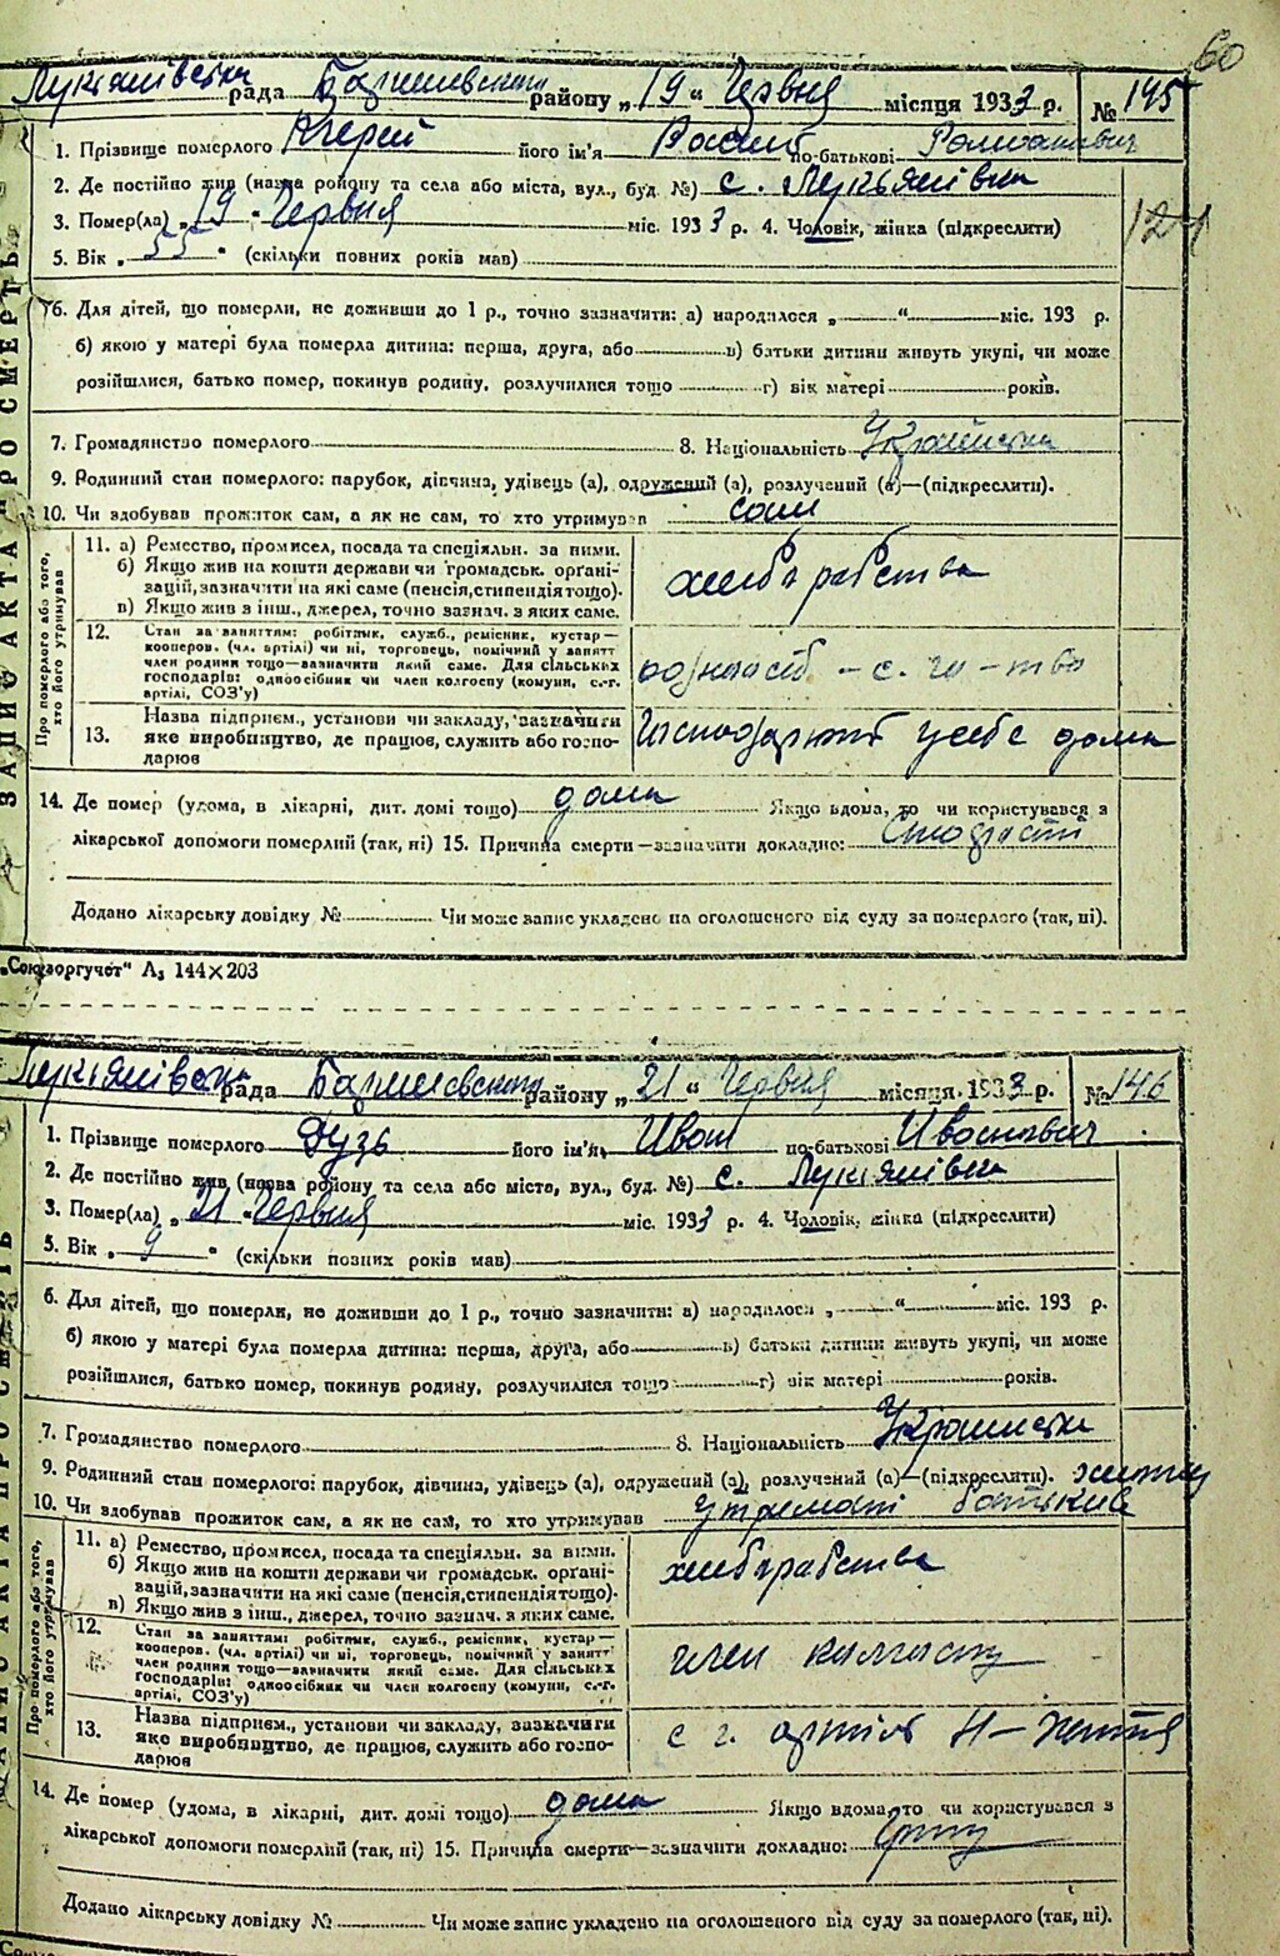 60
Лукянівська рада Баришевського району „19" Червня місяця 1933 р. № 145
1. Прізвище померлого його ім'я Василь по-батькові Романович
2. Де постійно жив (назва району та села або міста, вул., буд. №) с. Лукьянівка
3. Помер(ла) „19" Червня міс. 1933 р. 4. Чоловік, жінка (підкреслити)
124
5. Вік „55" (скільки повних років мав)
6. Для дітей, що померли, не доживши до 1 р., точно зазначити: а) народилося „ " міс. 193 р.
б) якою у матері була померла дитина: перша, друга, або в) батьки дитини живуть укупі, чи може
розійшлися, батько помер, покинув родину, розлучилися тощо г) вік матері років.
7. Громадянство померлого 8. Національність Українська
9. Родинний стан померлого: парубок, дівчина, удівець (а), одружений (а), розлучений (а)—(підкреслити).
10. Чи здобував прожиток сам, а як не сам, то хто утримував сам
ЗАПИС АКТА ПРО СМЕРТЬ
Про померлого або того, хто його утримував
11. а) Ремество, промисел, посада та спеціяльн. за ними.
б) Якщо жив на кошти держави чи громадськ. орґані-
зацій, зазначити на які саме (пенсія, стипендія тощо).
в) Якщо жив з інш., джерел, точно зазнач. з яких саме.
хлеборабства
12. Стан за заняттям: робітник, служб., ремісник, кустар—
кооперов. (чл. артілі) чи ні, торговець, помічний у занятт
член родини тощо—зазначити який саме. Для сільських
господарів: одноосібник чи член колгоспу (комуни, с.-г.
артілі, СОЗ'у)
одноосіб – с. го – тва
13. Назва підприєм., установи чи закладу, зазначити
яке виробництво, де працює, служить або госпо-
дарює
у себе дома
14. Де помер (удома, в лікарні, дит. домі тощо) дома Якщо вдома, то чи користувався з
лікарської допомоги померлий (так, ні) 15. Причина смерти—зазначити докладно:
Додано лікарську довідку № Чи може запис укладено на оголошеного від суду за померлого (так, ні).
„Союзоргучот" А₃ 144×203
Лукянівська рада Баришевського району „21" Червня місяця 1933 р. № 146
1. Прізвище померлого Дузь його ім'я Иван по-батькові Иванович
2. Де постійно жив (назва району та села або міста, вул., буд. №) с. Лукянівка
3. Помер(ла) „21" Червня міс. 1933 р. 4. Чоловік, жінка (підкреслити)
5. Вік „9" (скільки повних років мав)
6. Для дітей, що померли, не доживши до 1 р., точно зазначити: а) народилося „ " міс. 193 р.
б) якою у матері була померла дитина: перша, друга, або в) батьки дитини живуть укупі, чи може
розійшлися, батько помер, покинув родину, розлучилися тощо г) вік матері років.
7. Громадянство померлого 8. Національність Українська
9. Родинний стан померлого: парубок, дівчина, удівець (а), одружений (а), розлучений (а)—(підкреслити).
10. Чи здобував прожиток сам, а як не сам, то хто утримував
Про померлого або того, хто його утримував
11. а) Ремество, промисел, посада та спеціяльн. за ними.
б) Якщо жив на кошти держави чи громадськ. орґані-
зацій, зазначити на які саме (пенсія, стипендія тощо).
в) Якщо жив з інш., джерел, точно зазнач. з яких саме.
хлеборабства
12. Стан за заняттям: робітник, служб., ремісник, кустар—
кооперов. (чл. артілі) чи ні, торговець, помічний у занятт
член родини тощо—зазначити який саме. Для сільських
господарів: одноосібник чи член колгоспу (комуни, с.-г.
артілі, СОЗ'у)
член калгоспу
13. Назва підприєм., установи чи закладу, зазначити
яке виробництво, де працює, служить або госпо-
дарює
с г. артіль Н–Життя
14. Де помер (удома, в лікарні, дит. домі тощо) дома Якщо вдома, то чи користувався з
лікарської допомоги померлий (так, ні) 15. Причина смерти—зазначити докладно:
Додано лікарську довідку № Чи може запис укладено на оголошеного від суду за померлого (так, ні).